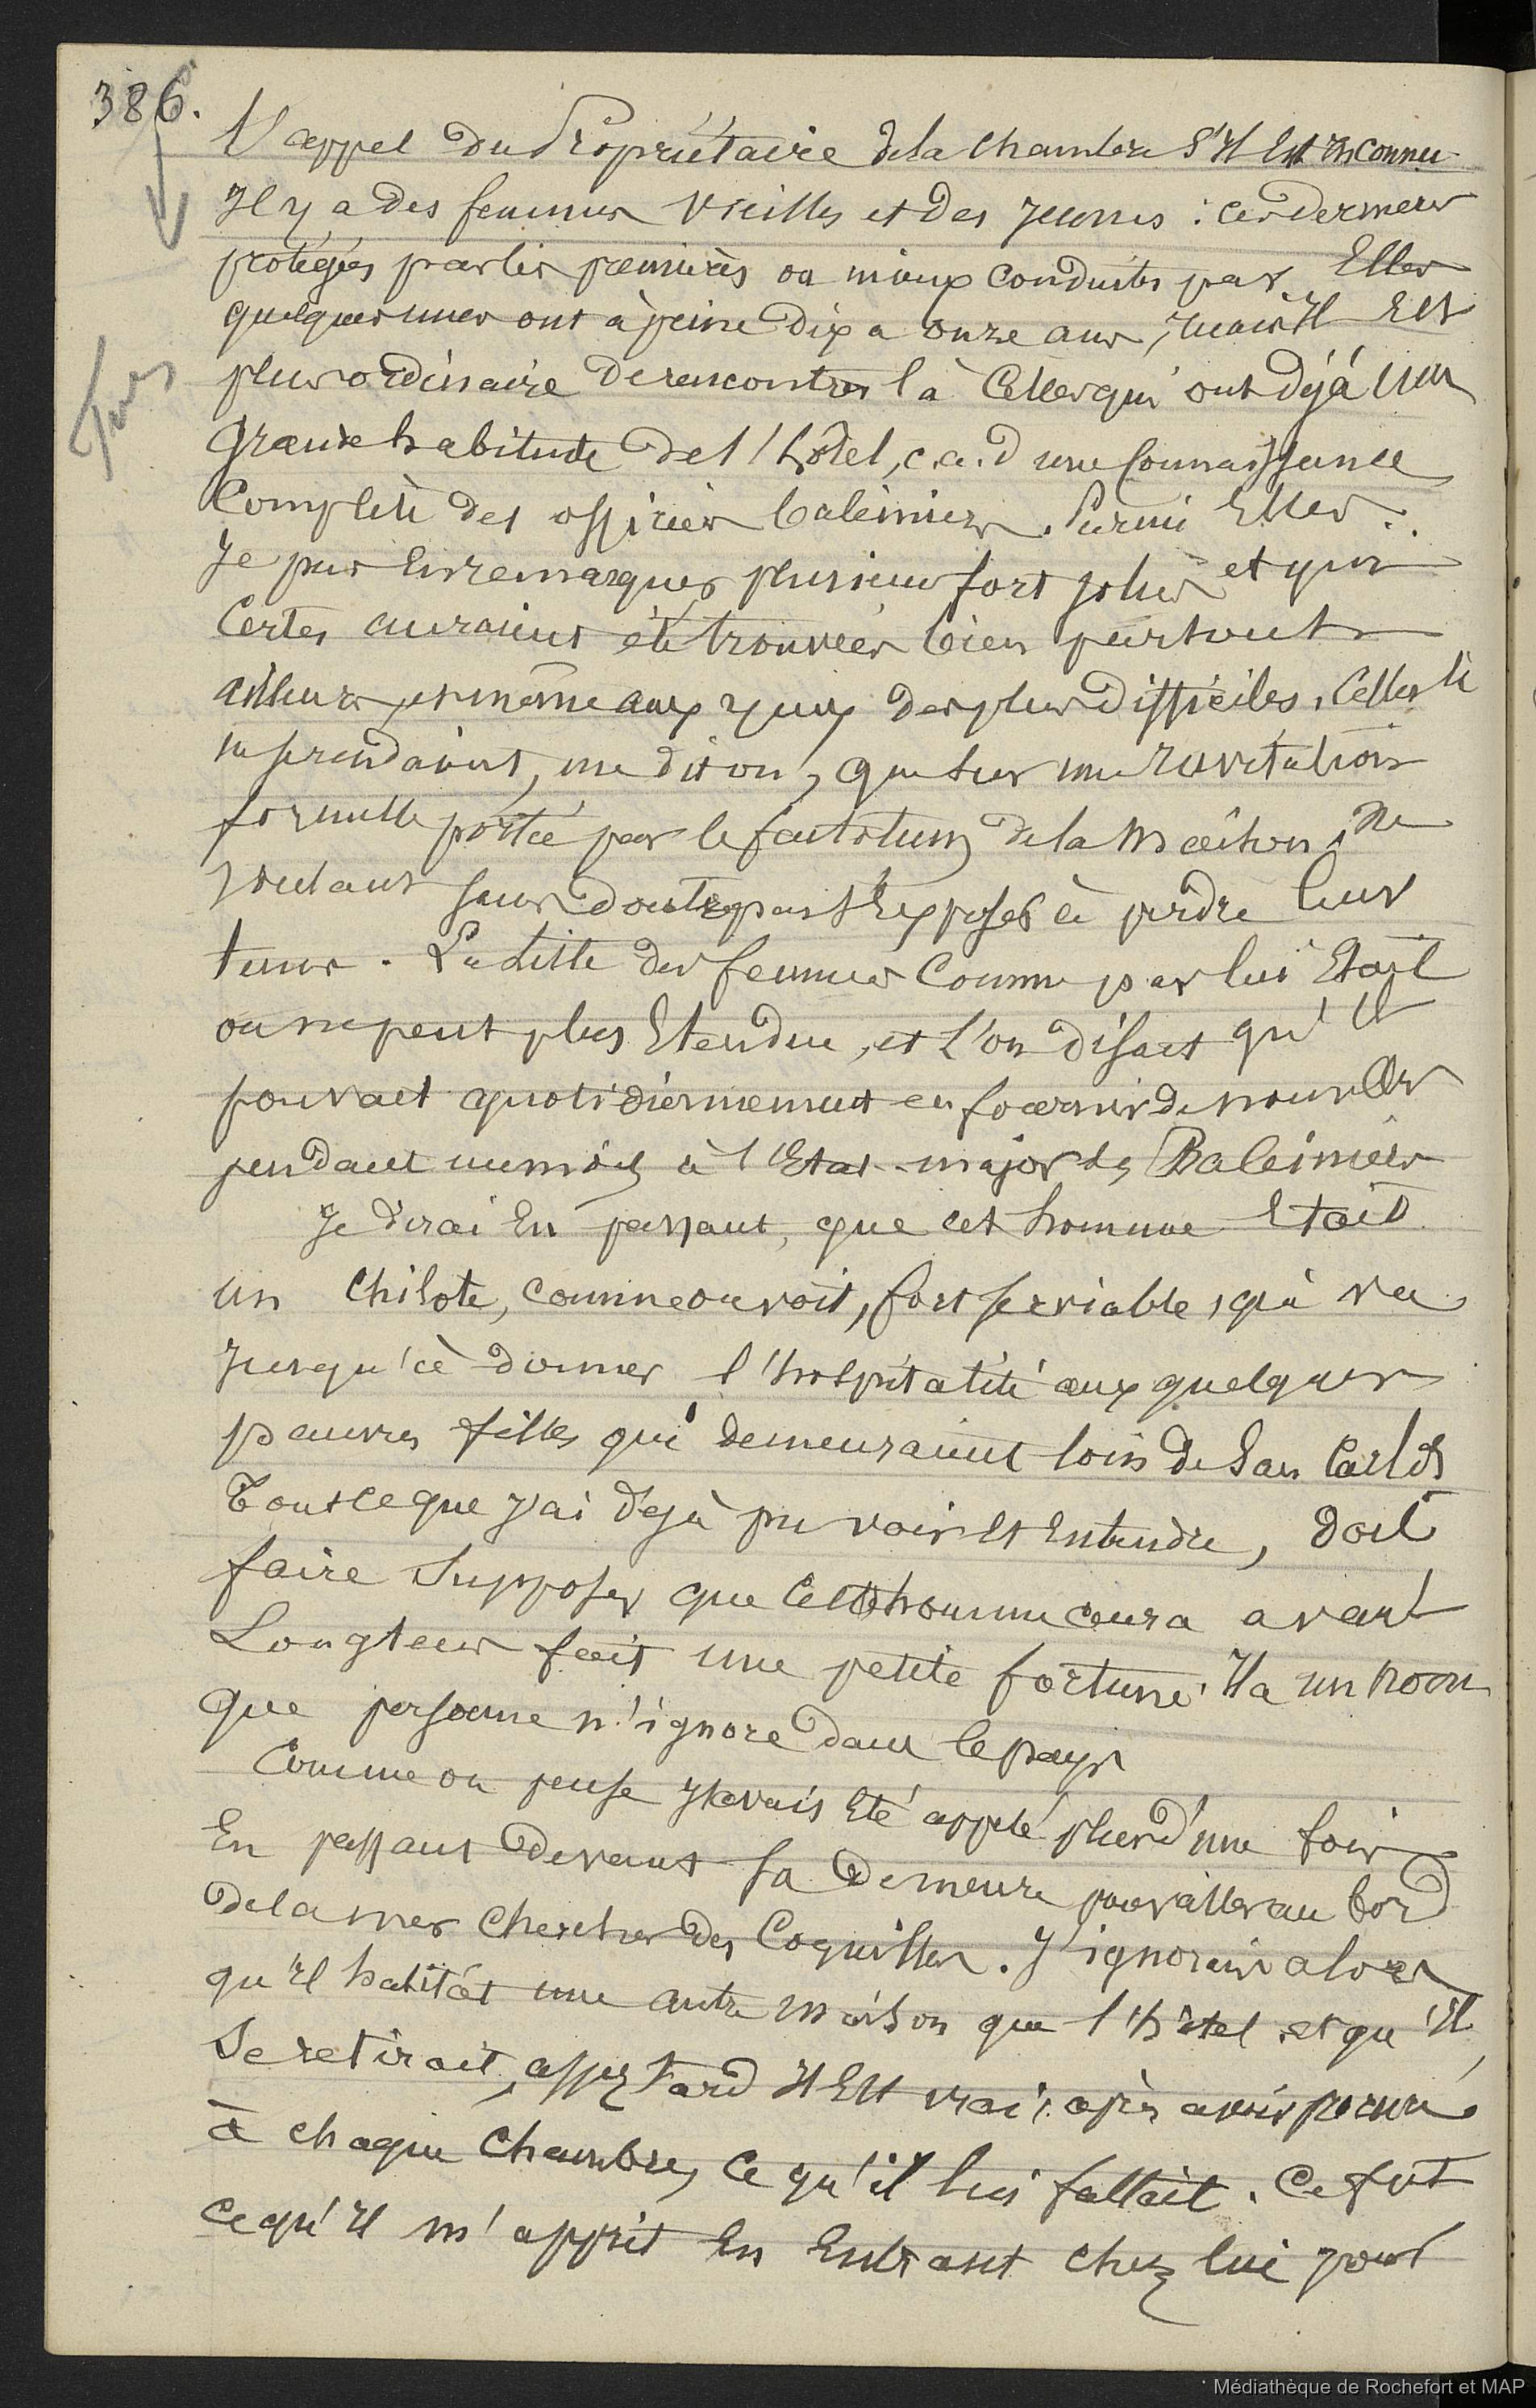 386.
l'appel du Propriétaire de la chambre s'Il Est Inconnu
Il y a des femmes vieilles et des jeunes : ces dernières
protégées par les premières ou mieux conduites par Elles
quelques unes ont à peine dix a onze ans, mais Il Est
plus ordinaire de rencontrer là Celles qui ont déjà une
grande habitude de l'hôtel, c.a.d une connaissance
Complète des officiers baleiniers. Parmi Elles.
Je pus En remarquer plusieurs fort jolies et qui
Certes auraient été trouvées bien partout
ailleurs, et même aux yeux des plus Difficiles. Celles là
ne se rendaient, me dit on, que sur une Invitation
formelle portée par le factotum de la Maison, Ne
voulant sans doute pas s'Exposer à perdre leur
tems. La Liste des femmes Connu par lui Etait
on ne peut plus Etendue, et L'on disait qu'Il
pouvait quotidiennement en fournir de nouvelles
pendant un mois à l'Etat-major des Baleiniers
Je dirai En passant, que cet homme Etait
un Chilote, comme on voit, fort serviable, qui va
Jusqu'à donner l'hospitalité aux quelques
pauvres filles qui demeuraient loin de San Carlos
Tout ce que j'ai déjà pu voir Et Entendre, doit
faire Supposer que Cet homme aura avant
Longtems fait une petite fortune. Il a un nom
que personne n'ignore dans le pays
Comme on pense j'avais Eté appelé plus d'une fois
En passant Devant sa Demeure pour aller au bord
de la mer Chercher Des Coquilles. J'ignorais alors
qu'Il habitât une autre maison que l'hôtel et qu'Il
Se retirait, assez tard Il Est vrai, après avoir
à chaque Chambre, Ce qu'il lui fallait. Ce fut
ce qu'Il m'apprit En Entrant chez lui pour
Médiathèque de Rochefort et MAP